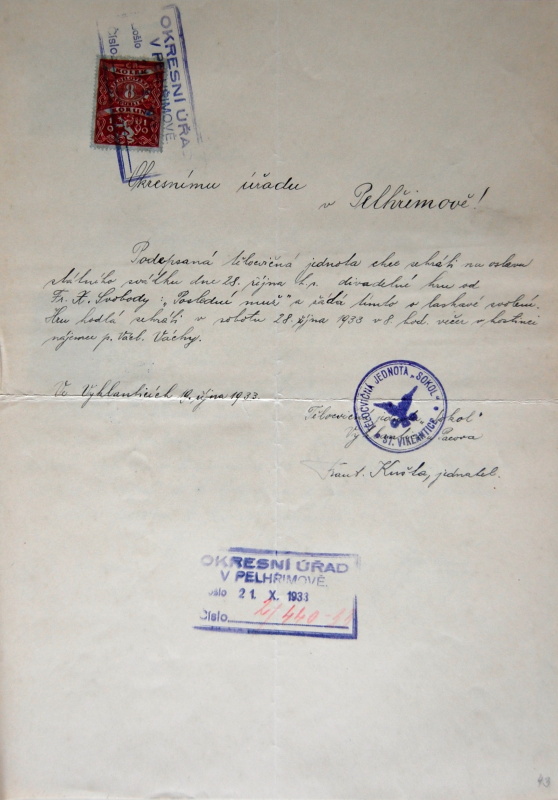 OKRESNÍ ÚŘAD
V PELHŘIMOVĚ
došlo
Číslo
KOLEK
8
KORUN
Okresnímu úřadu
v Pelhřimově!
Podepsaná tělocvičná jednota chce sehráti na oslavu
státního svátku dne 28. října t.r. divadelní hru od
Fr. X. Svobody: „Poslední muž" a žádá tímto o laskavé svolení.
Hru hodlá sehráti v sobotu 28. října 1933 v 8 hod. večer v hostinci
nájemce p. Václ. Váchy.
Ve Vyklanticích 19. října 1933.
TĚLOCVIČNÁ JEDNOTA „SOKOL"
ST. VIKLANTICE
Tělocvičná jednota „Sokol"
Pacova
Frant. Kušta, jednatel.
OKRESNÍ ÚŘAD
V PELHŘIMOVĚ
došlo 21. X. 1933
Číslo
43